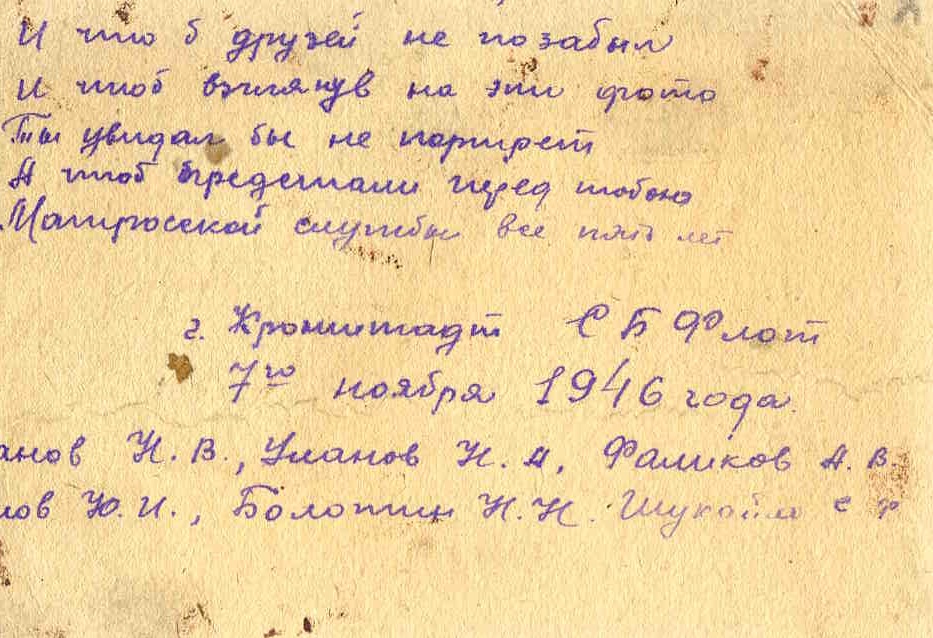 И что б друзей не позабыл
И чтоб взглянув на эти фото
Ты увидал бы не портрет
А чтоб предстали перед тобою
Матросской службы все пять лет
г. Кронштадт С Б Флот
7го ноября 1946 года.
анов Н. В., Уланов Н. А, Фаликов А. В.
лов Ю. И., Болотин Н. Н. Шукайло С Ф